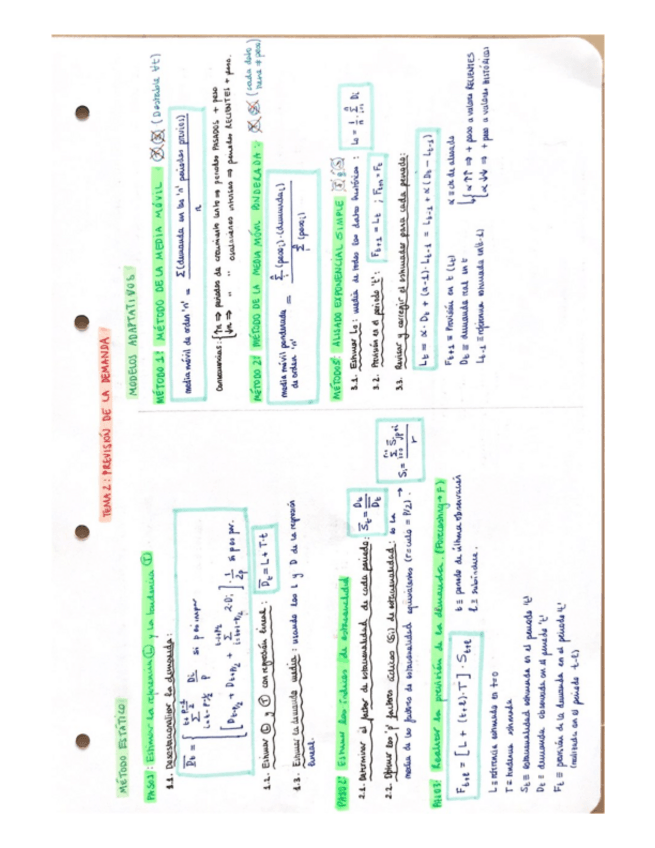 TEMA 2: PREVISIÓN DE LA DEMANDA
MÉTODO ESTÁTICO
PASO 1: Estimar la referencia (L) y la tendencia (T)
1.1. Desestacionalizar la demanda:
si p impar
si p es par.
1.2. Estimar (L) y (T) con regresión lineal: D̅t = L + T·t
1.3. Estimar la demanda media: usando los L y D de la regresión
lineal.
PASO 2: Estimar los índices de estacionalidad
2.1. Determinar el factor de estacionalidad de cada periodo: S̅t = Dt / D̅t
2.2. Obtener los 'p' factores cíclicos (Si) de estacionalidad: es la
media de los factores de estacionalidad equivalentes (r=ciclo = P/2). →
PASO 3: Realizar la previsión de la demanda. (Forecasting → F)
Ft+l = [L + (t+l)·T] · St+l
t ≡ periodo de última observación
L ≡ referencia estimada en t=0
T ≡ tendencia estimada
St ≡ estacionalidad estimada en el periodo 't'
Dt ≡ demanda observada en el periodo 't'
Ft ≡ previsión de la demanda en el periodo 't'
(realizada en el periodo t-l)
MODELOS ADAPTATIVOS
MÉTODO 1: MÉTODO DE LA MEDIA MÓVIL
media móvil de orden 'n' = Σ(demanda en los 'n' periodos previos) / n
Consecuencias: { ↑n ⇒ periodos de crecimiento lento ⇒ periodos PASADOS + peso
↓n ⇒ " " oscilaciones intensas ⇒ periodos RECIENTES + peso.
MÉTODO 2: MÉTODO DE LA MEDIA MÓVIL PONDERADA (cada dato
tiene ≠ peso)
media móvil ponderada
de orden 'n' = Σ (peso i)·(demanda i) / Σ (peso i)
ALISADO EXPONENCIAL SIMPLE
3.1. Estimar L0: media de todos los datos históricos: L0 = 1/n Σ Di
3.2. Previsión en el periodo 't': Ft+1 = Lt ; Ft+n = Ft
3.3. Revisar y corregir el estimador para cada periodo:
Lt = α·Dt + (1-α)·Lt-1 = Lt-1 + α(Dt - Lt-1)
Ft+1 ≡ Previsión en t (Lt)
Dt ≡ demanda real en t
Lt-1 ≡ referencia estimada en (t-1)
α ≡ cte de alisado
α↑↑ ⇒ + peso a valores RECIENTES
α↓↓ ⇒ + peso a valores HISTÓRICOS